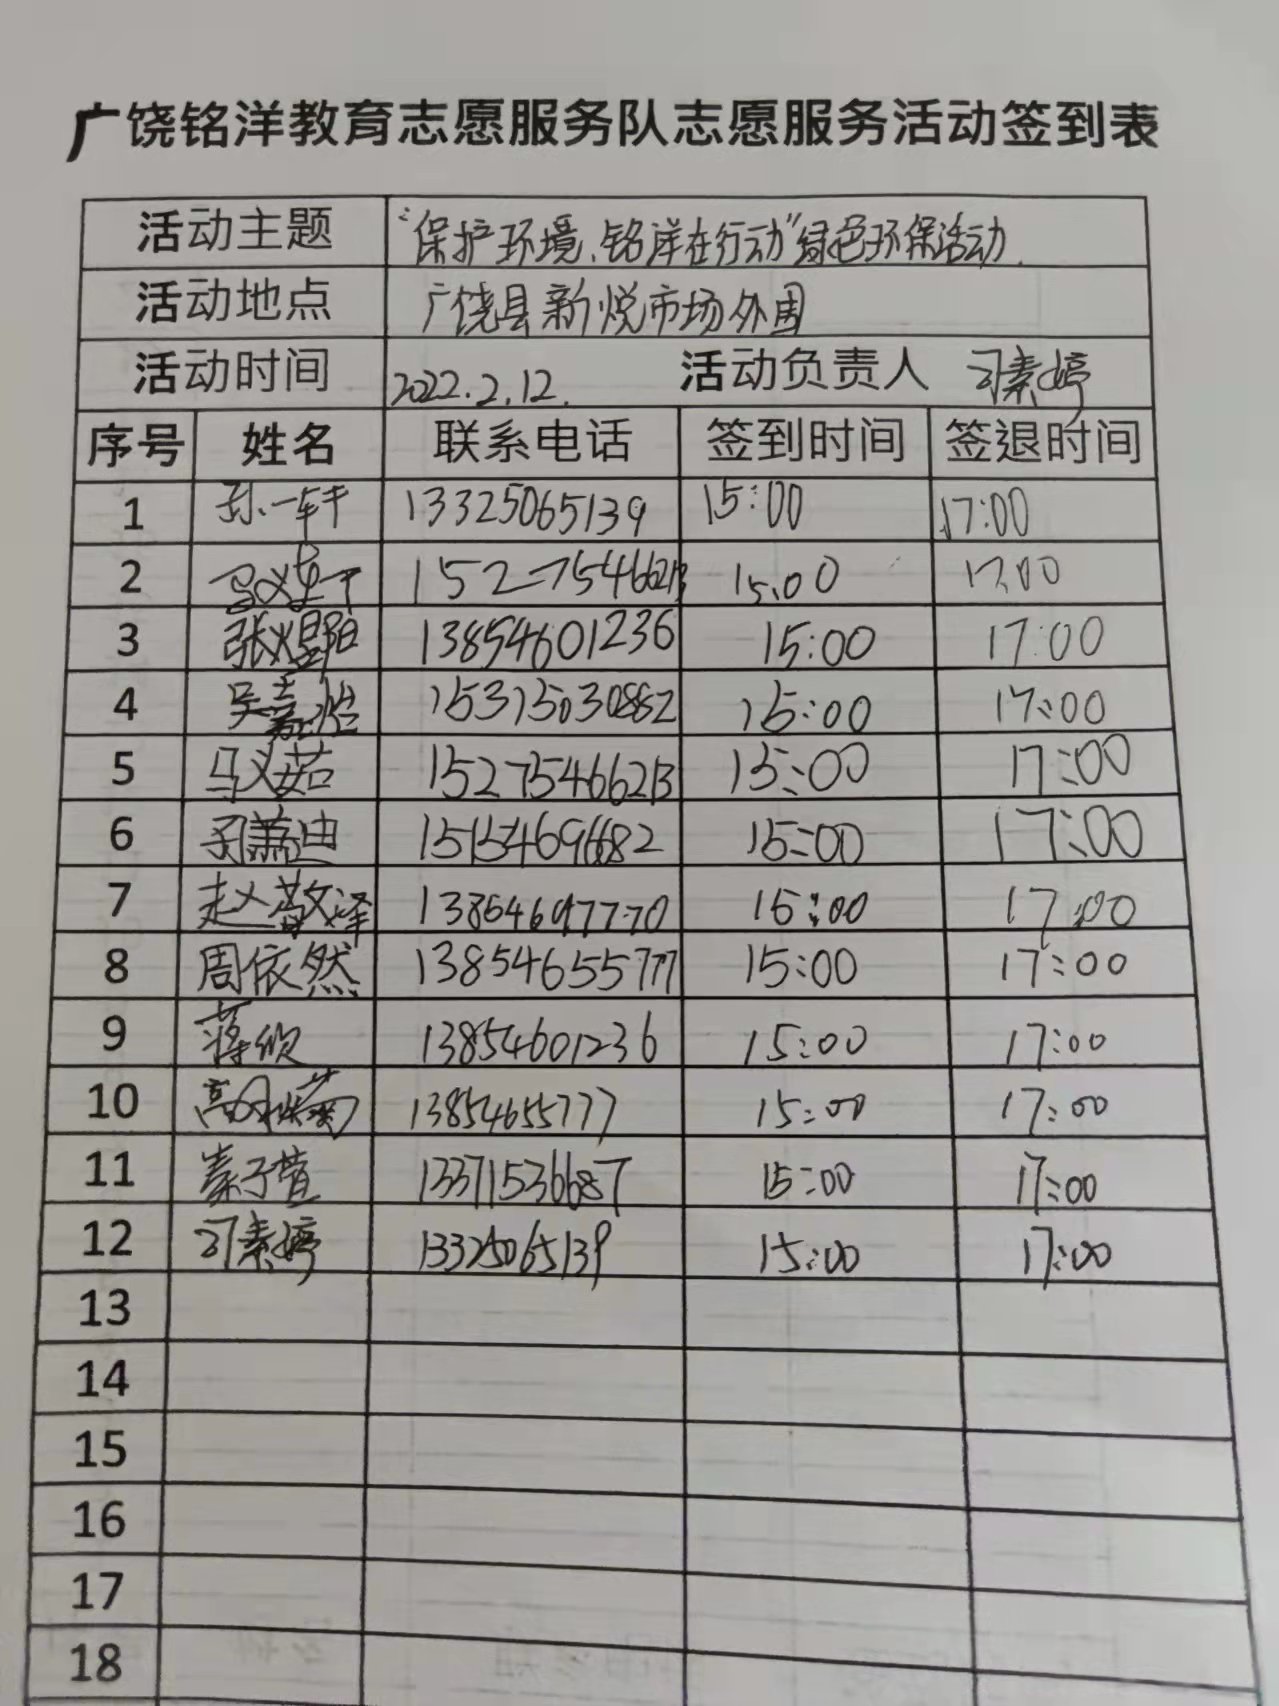 广饶铭洋教育志愿服务队志愿服务活动签到表
活动主题 “保护环境、铭洋在行动”绿色环保活动.
活动地点 广饶县新悦市场外围
活动时间 2022.2.12. 活动负责人 刁素婷
序号 姓名 联系电话 签到时间 签退时间
1 孙一轩 13325065139 15:00 17:00
2 15:00 17:00
3 张煜阳 13854601236 15:00 17:00
4 吴嘉怡 15315030882 15:00 17:00
5 马义茹 15275466213 15:00 17:00
6 15:00 17:00
7 赵敬泽 13854697770 15:00 17:00
8 周依然 13854655777 15:00 17:00
9 蒋欣 13854601236 15:00 17:00
10 13854655777 15:00 17:00
11 秦子萱 13371536687 15:00 17:00
12 刁素婷 13325065139 15:00 17:00
13
14
15
16
17
18